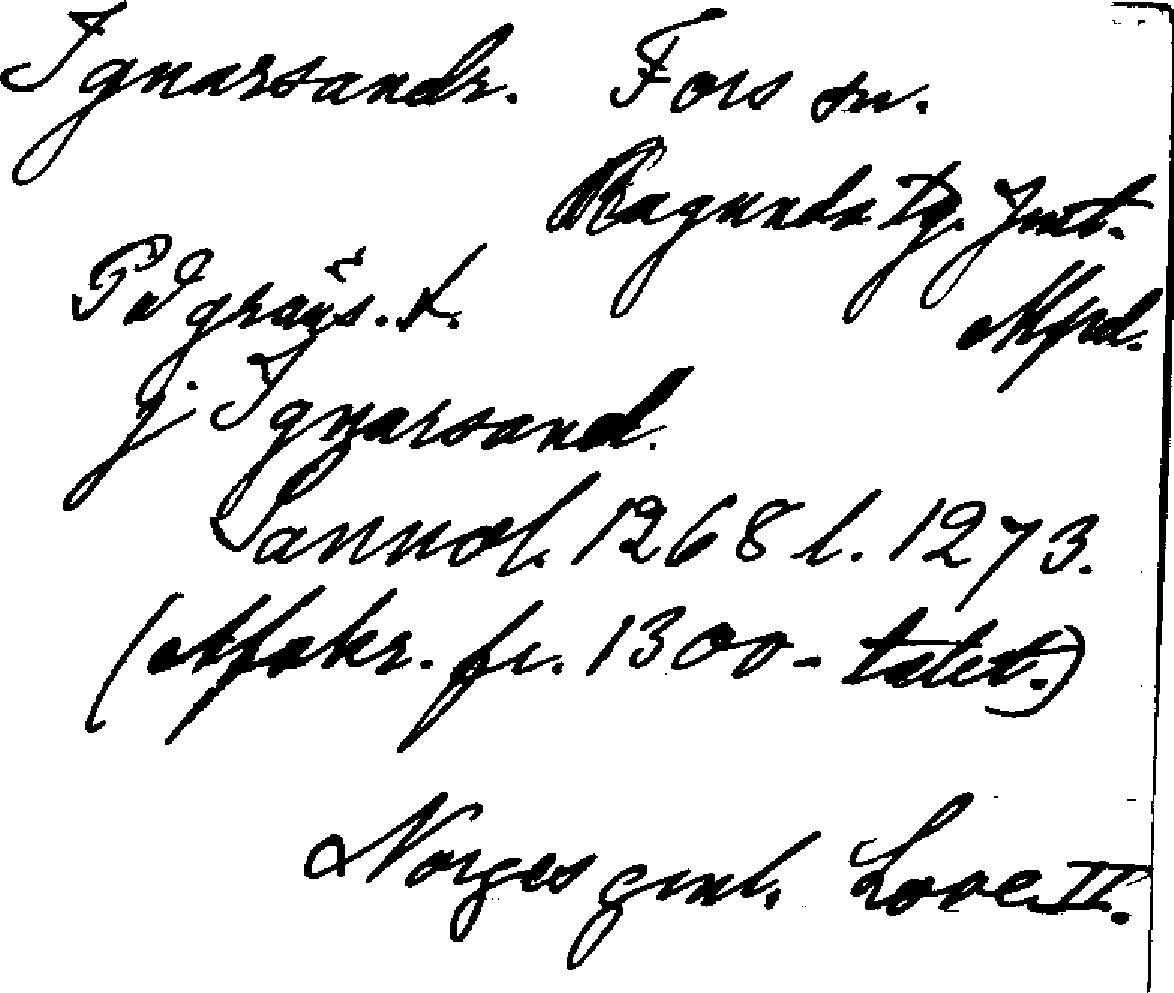 Ignarsandr. Fors sn.
Ragunda tg. Jmt.
På gräns. t.
Mpd.
j. Ignarsand.
Sannol. 1268 l. 1273.
(Afskr. fr. 1300-talet.)
Norges gml. Love II.